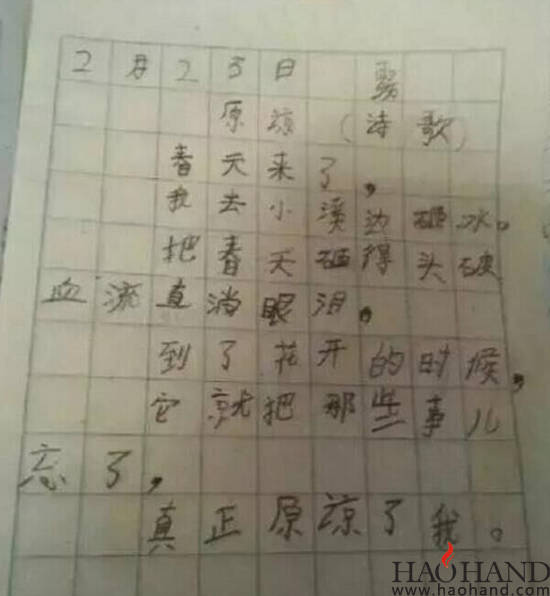 2月25日
原谅 （诗歌）
春天来了，
我去小溪边砸冰。
把春天砸得头破
血流直淌眼泪。
到了花开的时候，
它就把那些事儿
忘了，
真正原谅了我。
HAOHAND
www.haohand.com